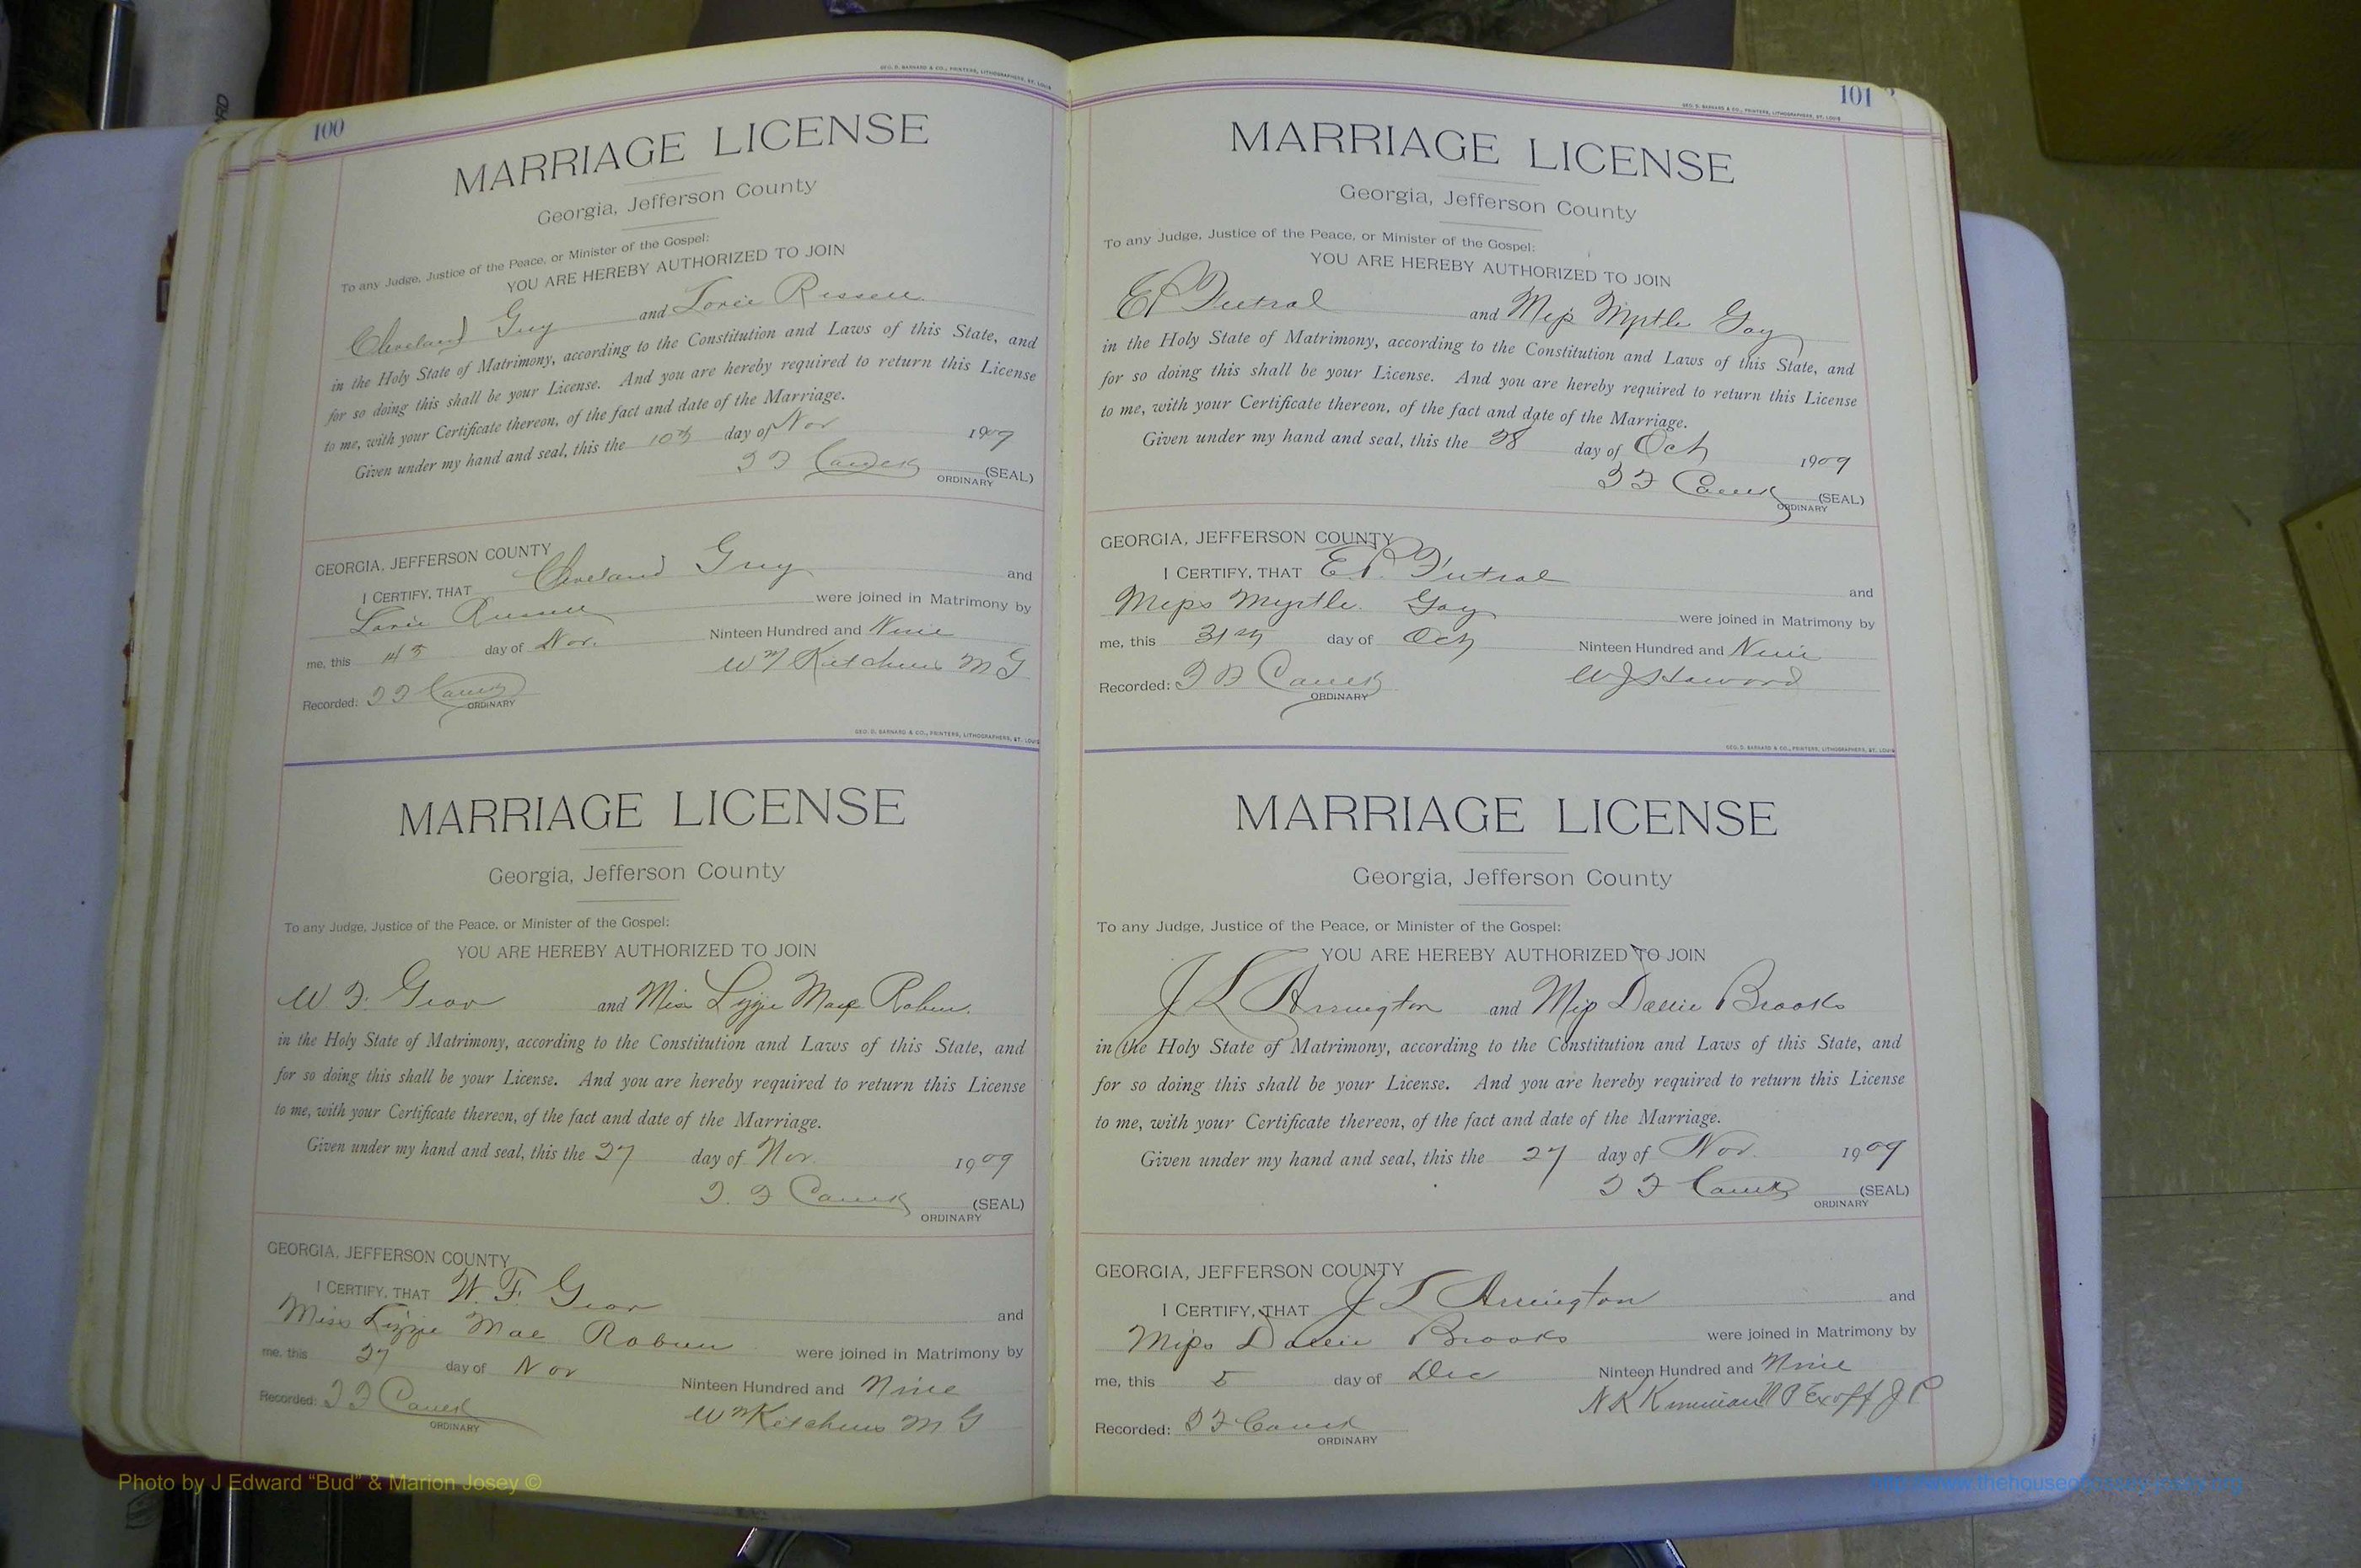 100
GEO. D. BARNARD & CO., PRINTERS, LITHOGRAPHERS, ST. LOUIS
MARRIAGE LICENSE
Georgia, Jefferson County
To any Judge, Justice of the Peace, or Minister of the Gospel:
YOU ARE HEREBY AUTHORIZED TO JOIN
Cleveland Guy and Lorie Russell
in the Holy State of Matrimony, according to the Constitution and Laws of this State, and
for so doing this shall be your License. And you are hereby required to return this License
to me, with your Certificate thereon, of the fact and date of the Marriage.
Given under my hand and seal, this the 10th day of Nov 1909
(SEAL)
ORDINARY
GEORGIA, JEFFERSON COUNTY
I CERTIFY, THAT Cleveland Guy and
Lorie Russell were joined in Matrimony by
me, this 14 day of Nov. Ninteen Hundred and Nine
Kitchens M G
Recorded:
ORDINARY
GEO. D. BARNARD & CO., PRINTERS, LITHOGRAPHERS, ST. LOUIS
MARRIAGE LICENSE
Georgia, Jefferson County
To any Judge, Justice of the Peace, or Minister of the Gospel:
YOU ARE HEREBY AUTHORIZED TO JOIN
W. F. and Miss Lizzie Mae
in the Holy State of Matrimony, according to the Constitution and Laws of this State, and
for so doing this shall be your License. And you are hereby required to return this License
to me, with your Certificate thereon, of the fact and date of the Marriage.
Given under my hand and seal, this the 27 day of Nov. 1909
(SEAL)
ORDINARY
GEORGIA, JEFFERSON COUNTY
I CERTIFY, THAT W. F. and
Miss Lizzie Mae were joined in Matrimony by
me, this 27 day of Nov Ninteen Hundred and Nine
Kitchens M G
Recorded:
ORDINARY
101
GEO. D. BARNARD & CO., PRINTERS, LITHOGRAPHERS, ST. LOUIS
MARRIAGE LICENSE
Georgia, Jefferson County
To any Judge, Justice of the Peace, or Minister of the Gospel:
YOU ARE HEREBY AUTHORIZED TO JOIN
E P Futral and Miss Myrtle Gay
in the Holy State of Matrimony, according to the Constitution and Laws of this State, and
for so doing this shall be your License. And you are hereby required to return this License
to me, with your Certificate thereon, of the fact and date of the Marriage.
Given under my hand and seal, this the 28 day of Oct 1909
(SEAL)
ORDINARY
GEORGIA, JEFFERSON COUNTY
I CERTIFY, THAT E. P. Futral and
Miss Myrtle Gay were joined in Matrimony by
me, this 31st day of Oct Ninteen Hundred and Nine
W J Howard
Recorded:
ORDINARY
GEO. D. BARNARD & CO., PRINTERS, LITHOGRAPHERS, ST. LOUIS
MARRIAGE LICENSE
Georgia, Jefferson County
To any Judge, Justice of the Peace, or Minister of the Gospel:
YOU ARE HEREBY AUTHORIZED TO JOIN
J L Arrington and Miss Dallie Brooks
in the Holy State of Matrimony, according to the Constitution and Laws of this State, and
for so doing this shall be your License. And you are hereby required to return this License
to me, with your Certificate thereon, of the fact and date of the Marriage.
Given under my hand and seal, this the 27 day of Nov. 1909
(SEAL)
ORDINARY
GEORGIA, JEFFERSON COUNTY
I CERTIFY, THAT J L Arrington and
Miss Dallie Brooks were joined in Matrimony by
me, this 5 day of Dec Ninteen Hundred and Nine
Recorded:
ORDINARY
Photo by J Edward “Bud” & Marion Josey ©